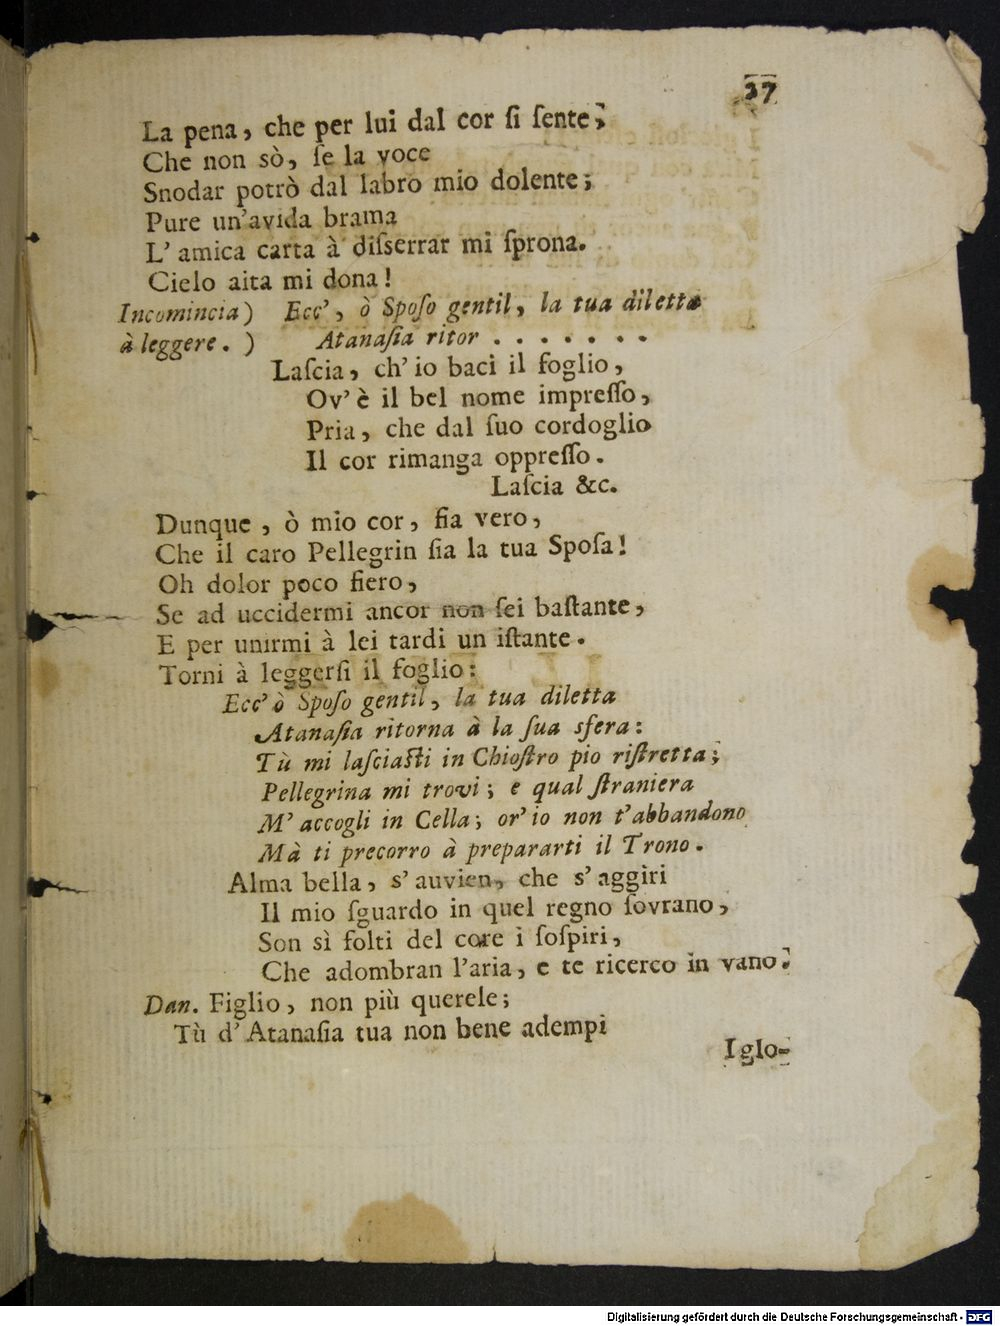 27
La pena, che per lui dal cor ſi ſente;
Che non sò, ſe la voce
Snodar potrò dal labro mio dolente;
Pure un'avida brama
L' amica carta à diſserrar mi ſprona.
Cielo aita mi dona!
Incomincia) Ecc', ò Spoſo gentil, la tua diletta
à leggere. ) Atanaſia ritor . . . . . . .
Laſcia, ch' io baci il foglio,
Ov' è il bel nome impreſſo,
Pria, che dal ſuo cordoglio
Il cor rimanga oppreſſo.
Laſcia &c.
Dunque, ò mio cor, fia vero,
Che il caro Pellegrin ſia la tua Spoſa!
Oh dolor poco fiero,
Se ad uccidermi ancor non ſei baſtante,
E per unirmi à lei tardi un iſtante.
Torni à leggerſi il foglio:
Ecc' ò Spoſo gentil, la tua diletta
Atanaſia ritorna à la ſua sfera:
Tù mi laſciaſti in Chioſtro pio riſtretta;
Pellegrina mi trovi; e qual ſtraniera
M' accogli in Cella; or' io non t' abbandono
Mà ti precorro à prepararti il Trono.
Alma bella, s' auvien, che s' aggiri
Il mio ſguardo in quel regno ſovrano,
Son sì folti del core i ſoſpiri,
Che adombran l'aria, e te ricerco in vano.
Dan. Figlio, non più querele;
Tù d' Atanaſia tua non bene adempi
I glo-
Digitalisierung gefördert durch die Deutsche Forschungsgemeinschaft - DFG